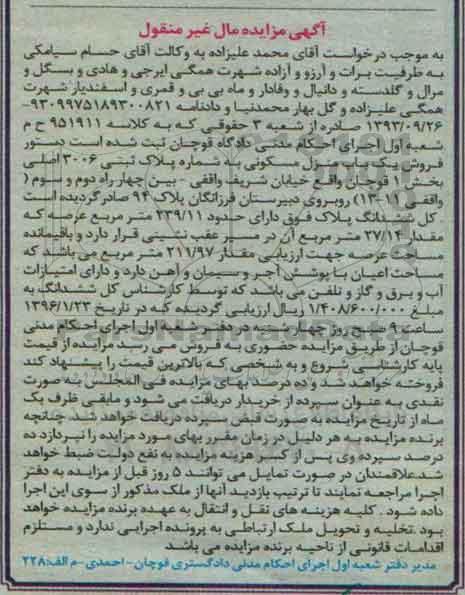 آگهی مزایده مال غیر منقول
به موجب درخواست آقای محمد علیزاده به وکالت آقای حسام سیامکی
به طرفیت برات و آرزو و آزاده شهرت همگی ایرجی و هادی و بسگل و
مرال و گلدسته و دانیال و وفادار و ماه بی بی و قمری و اسفندیار شهرت
همگی علیزاده و گل بهار محمدنیا و دادنامه ۹۳۰۹۹۷۵۱۸۹۳۰۰۸۲۱-
۱۳۹۳/۰۹/۲۶ صادره از شعبه ۳ حقوقی که به کلاسه ۹۵۱۹۱۱ ح م
شعبه اول اجرای احکام مدنی دادگاه قوچان ثبت شده است دستور
فروش یک باب منزل مسکونی به شماره پلاک ثبتی ۳۰۰۶ اصلی
بخش ۱ قوچان واقع خیابان شریف واقفی - بین چهار راه دوم و سوم (
واقفی ۱۱-۱۳) روبروی دبیرستان فرزانگان پلاک ۹۴ صادر گردیده است
. کل ششدانگ پلاک فوق دارای حدود ۲۳۹/۱۱ متر مربع عرصه که
مقدار ۲۷/۱۴ متر مربع آن در مسیر عقب نشینی قرار دارد و باقیمانده
مساحت عرصه جهت ارزیابی مقدار ۲۱۱/۹۷ متر مربع می باشد که
مساحت اعیان با پوشش آجر و سیمان و آهن دارد و دارای امتیازات
آب و برق و گاز و تلفن می باشد که توسط کارشناس کل ششدانگ به
مبلغ ۱/۴۰۸/۶۰۰/۰۰۰ ریال ارزیابی گردیده که در تاریخ ۱۳۹۶/۱/۲۳
ساعت ۹ صبح روز چهار شنبه در دفتر شعبه اول اجرای احکام مدنی
قوچان از طریق مزایده حضوری به فروش می رسد مزایده از قیمت
پایه کارشناسی شروع و به شخصی که بالاترین قیمت را پیشنهاد کند
فروخته خواهد شد و ده درصد بهای مزایده فی المجلس به صورت
نقدی به عنوان سپرده از خریدار دریافت می شود و مابقی ظرف یک
ماه از تاریخ مزایده به صورت قبض سپرده دریافت خواهد شد. چنانچه
برنده مزایده به هر دلیل در زمان مقرر بهای مورد مزایده را نپردازد ده
درصد سپرده وی پس از کسر هزینه مزایده به نفع دولت ضبط خواهد
شد.علاقمندان در صورت تمایل می توانند ۵ روز قبل از مزایده به دفتر
اجرا مراجعه نمایند تا ترتیب بازدید آنها از ملک مذکور از سوی این اجرا
داده شود . کلیه هزینه های نقل و انتقال به عهده برنده مزایده خواهد
بود .تخلیه و تحویل ملک ارتباطی به پرونده اجرایی ندارد و مستلزم
اقدامات قانونی از ناحیه برنده مزایده می باشد
مدیر دفتر شعبه اول اجرای احکام مدنی دادگستری قوچان - احمدی -م الف:۲۲۸